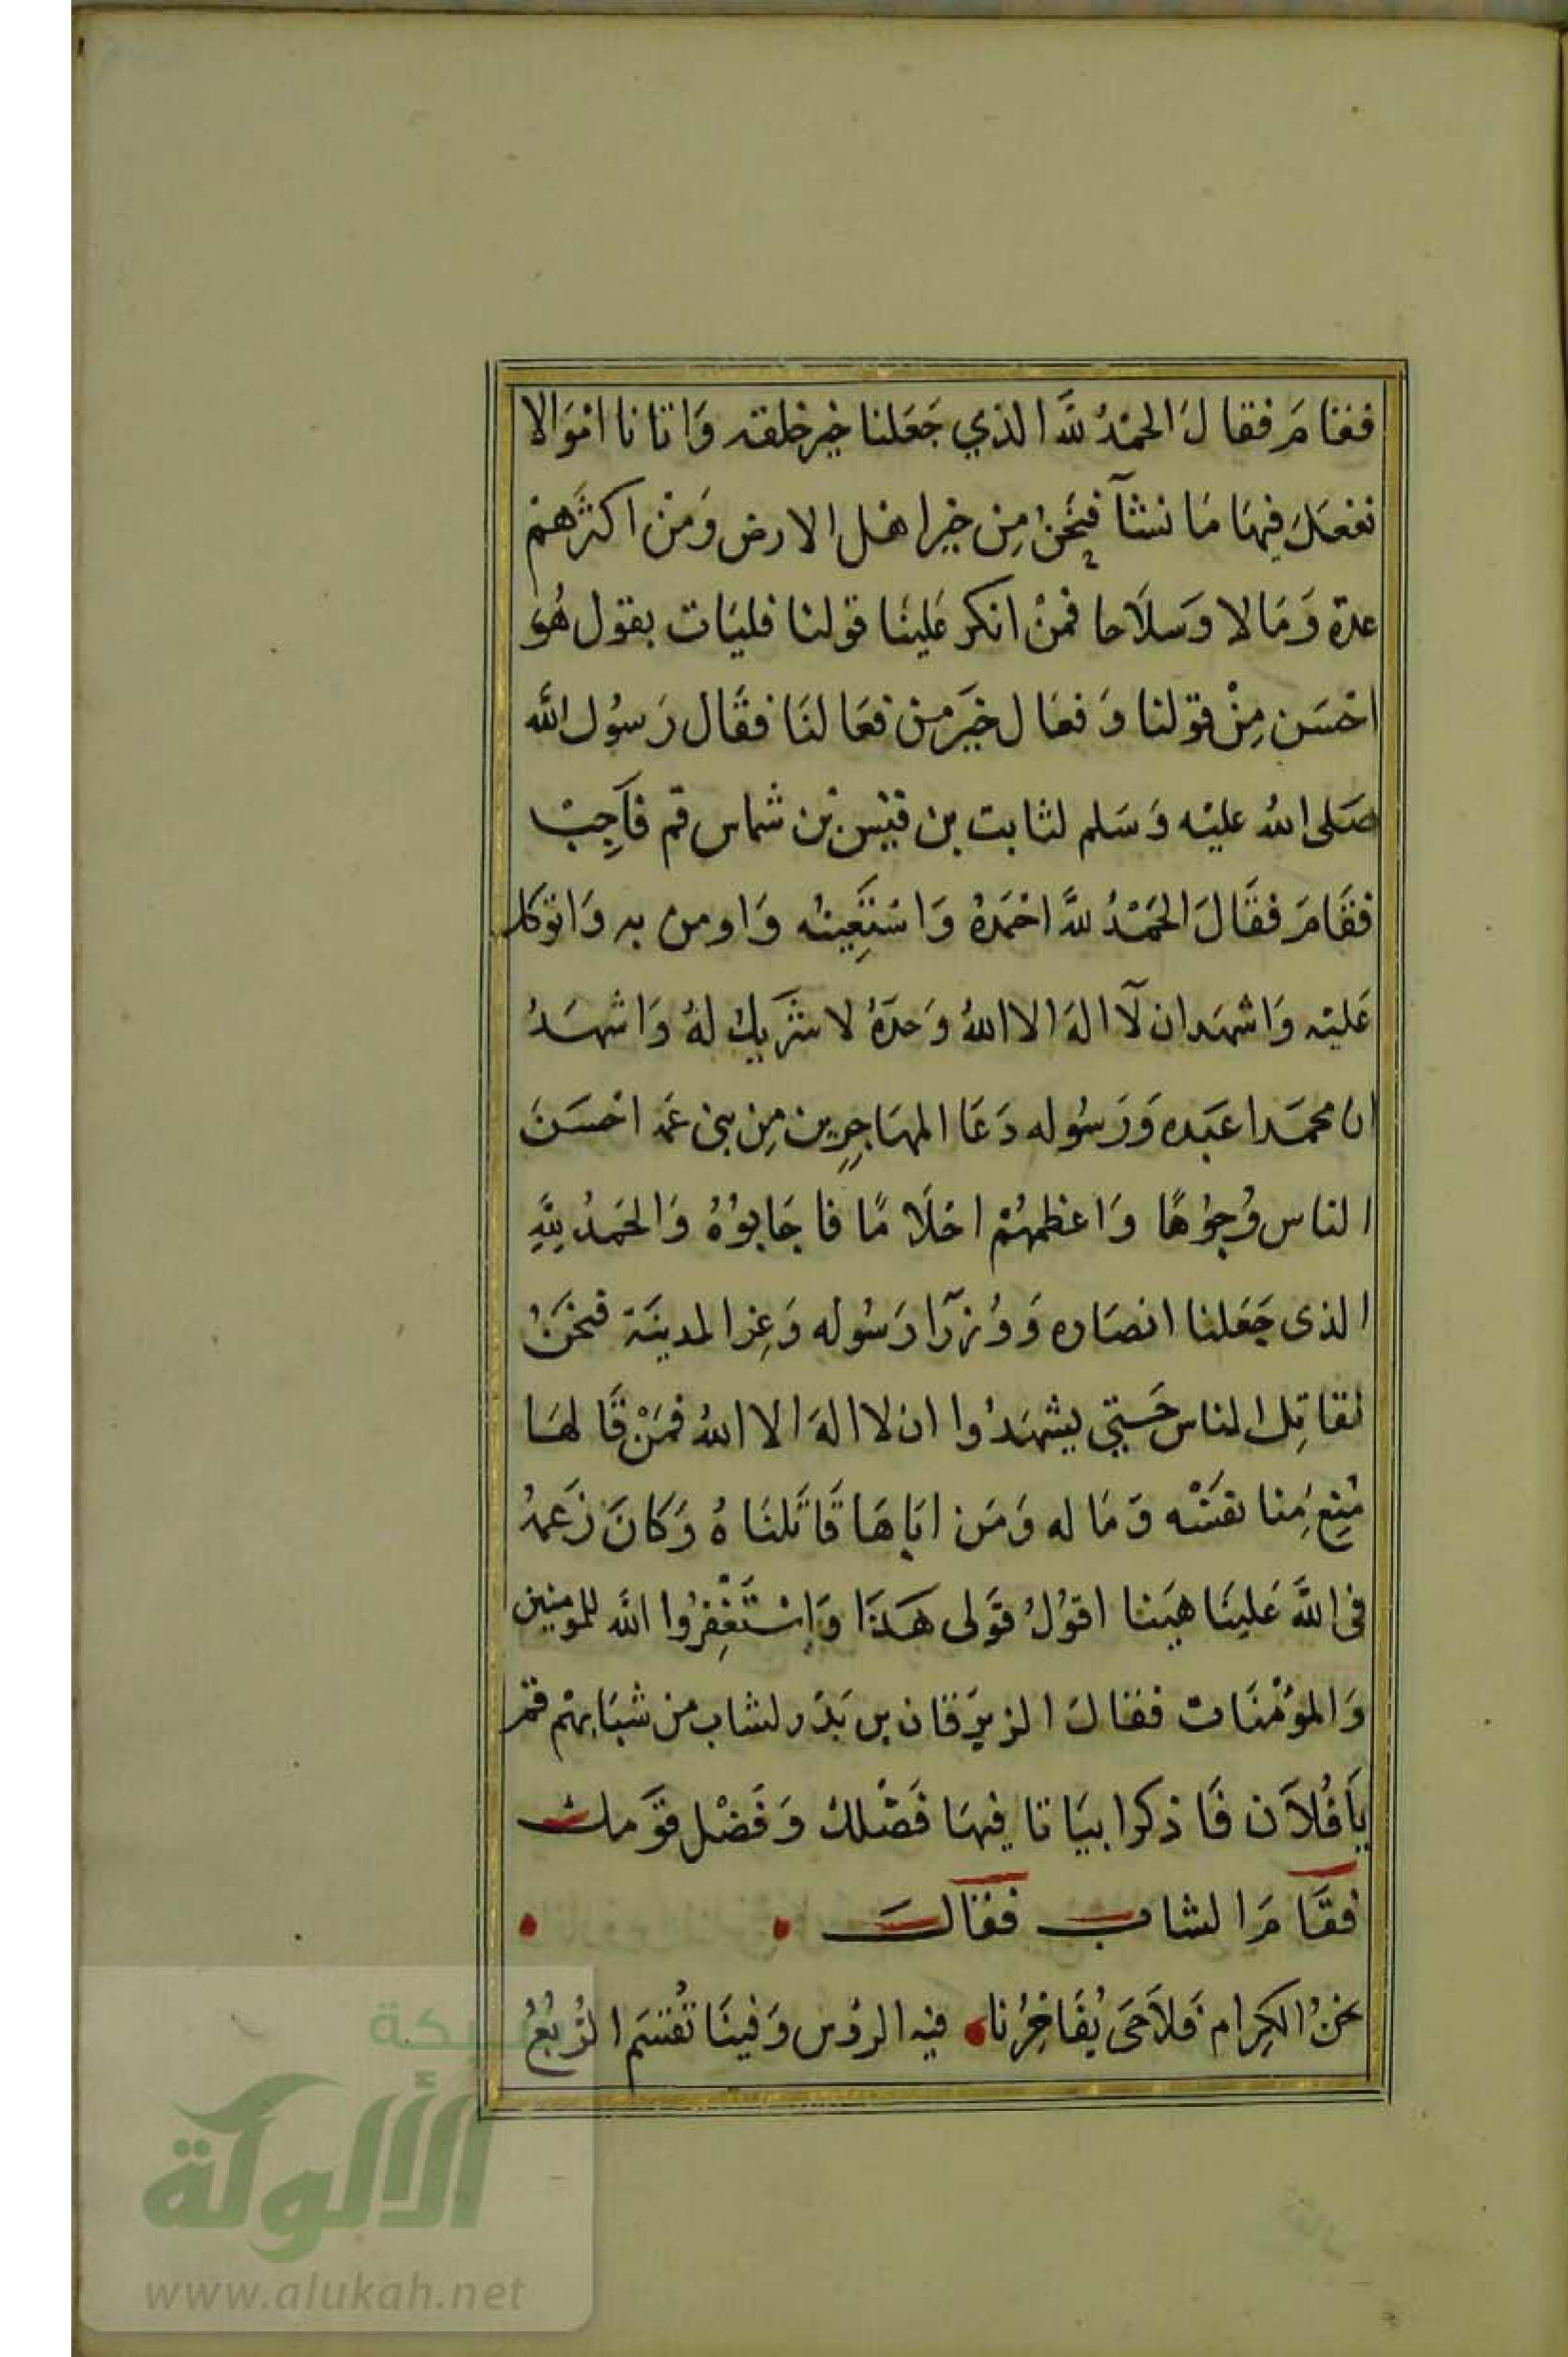 فقامَ فقالَ الحمْدُ للَّه الذي جَعَلنا خير خلقه وَاتانا امْوَالا
نفعَل فيهَا مَا نشآ فنَحْنُ مِن خير اهْل الارض وَمنْ اكثرَهمْ
عدة وَمَالا وَسلَاحا فمنْ انكر عَلينَا قولنا فليَات بقول هُوَ
احْسَن مِنْ قوْلنا وَفعَال خيَر من فعَالنَا فقَال رَسوُل الله
صَلى اللهُ عليْه وَسَلم لثابت بن قيْس بْن شماس قم فَاَجِبْ
فقَامَ فقَالَ الحَمْدُ للَّه احْمَدهُ وَاسْتَعِينُه وَاومن به وَاتوَكل
عَليْه وَاشْهَد ان لآ الهَ الا اللهُ وَحدَهُ لا شَريك لهُ وَاشهَدُ
ان محمَدا عبَده وَرَسُوله دَعَا المهَاجِرِين مِن بنى عَمه احْسَنَ
الناس وُجوُهًا وَاعْظمهُمْ احْلَامًا فاجَابوُهُ وَالحَمدُ لِلَّهِ
الذى جَعَلنا انصَاره وَوُزرآ رَسُوله وَعِز المدينَة فنحَنُ
نقاتِل الناس حَتي يشهَدُوا ان لا الهَ الا اللهُ فمَنْ قَالهَا
مُنِعَ مِنا نفسَه وَمَا له وَمَن ابَاهَا قَاتَلنَاهُ وَكَانَ رَغمهُ
فى اللَّه عَلينَا هيَنا اقوُلُ قوَلى هَذَا وَاسْتَغْفِرُوا اللَّه للمومنين
وَالموُمْنَات فقالَ الزبرِقان بن بَدْر لشاب من شبَابهمْ قم
يَا فُلَان فَاذكر ابيَاتا فيهَا فَضْلك وَفَضْل قوَمك
فقَامَ الشاب فقَالَ
نحنُ الكِرام فَلاَ حَى يُفَاخِرُنا فيه الروُس وَفينَا تُقسَم الرُبُعُ
شبكة
الألوكة
www.alukah.net